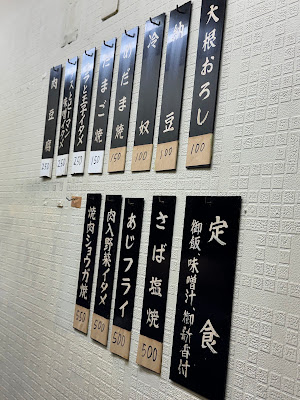 大根おろし
100
納豆
100
冷奴
100
だま焼
150
たまご焼
150
ラと玉子イタメ
250
250
肉豆腐
250
定食
御飯、味噌汁、御新香付
さば塩焼
500
あじフライ
500
肉入野菜イタメ
500
焼肉ショウガ焼
550